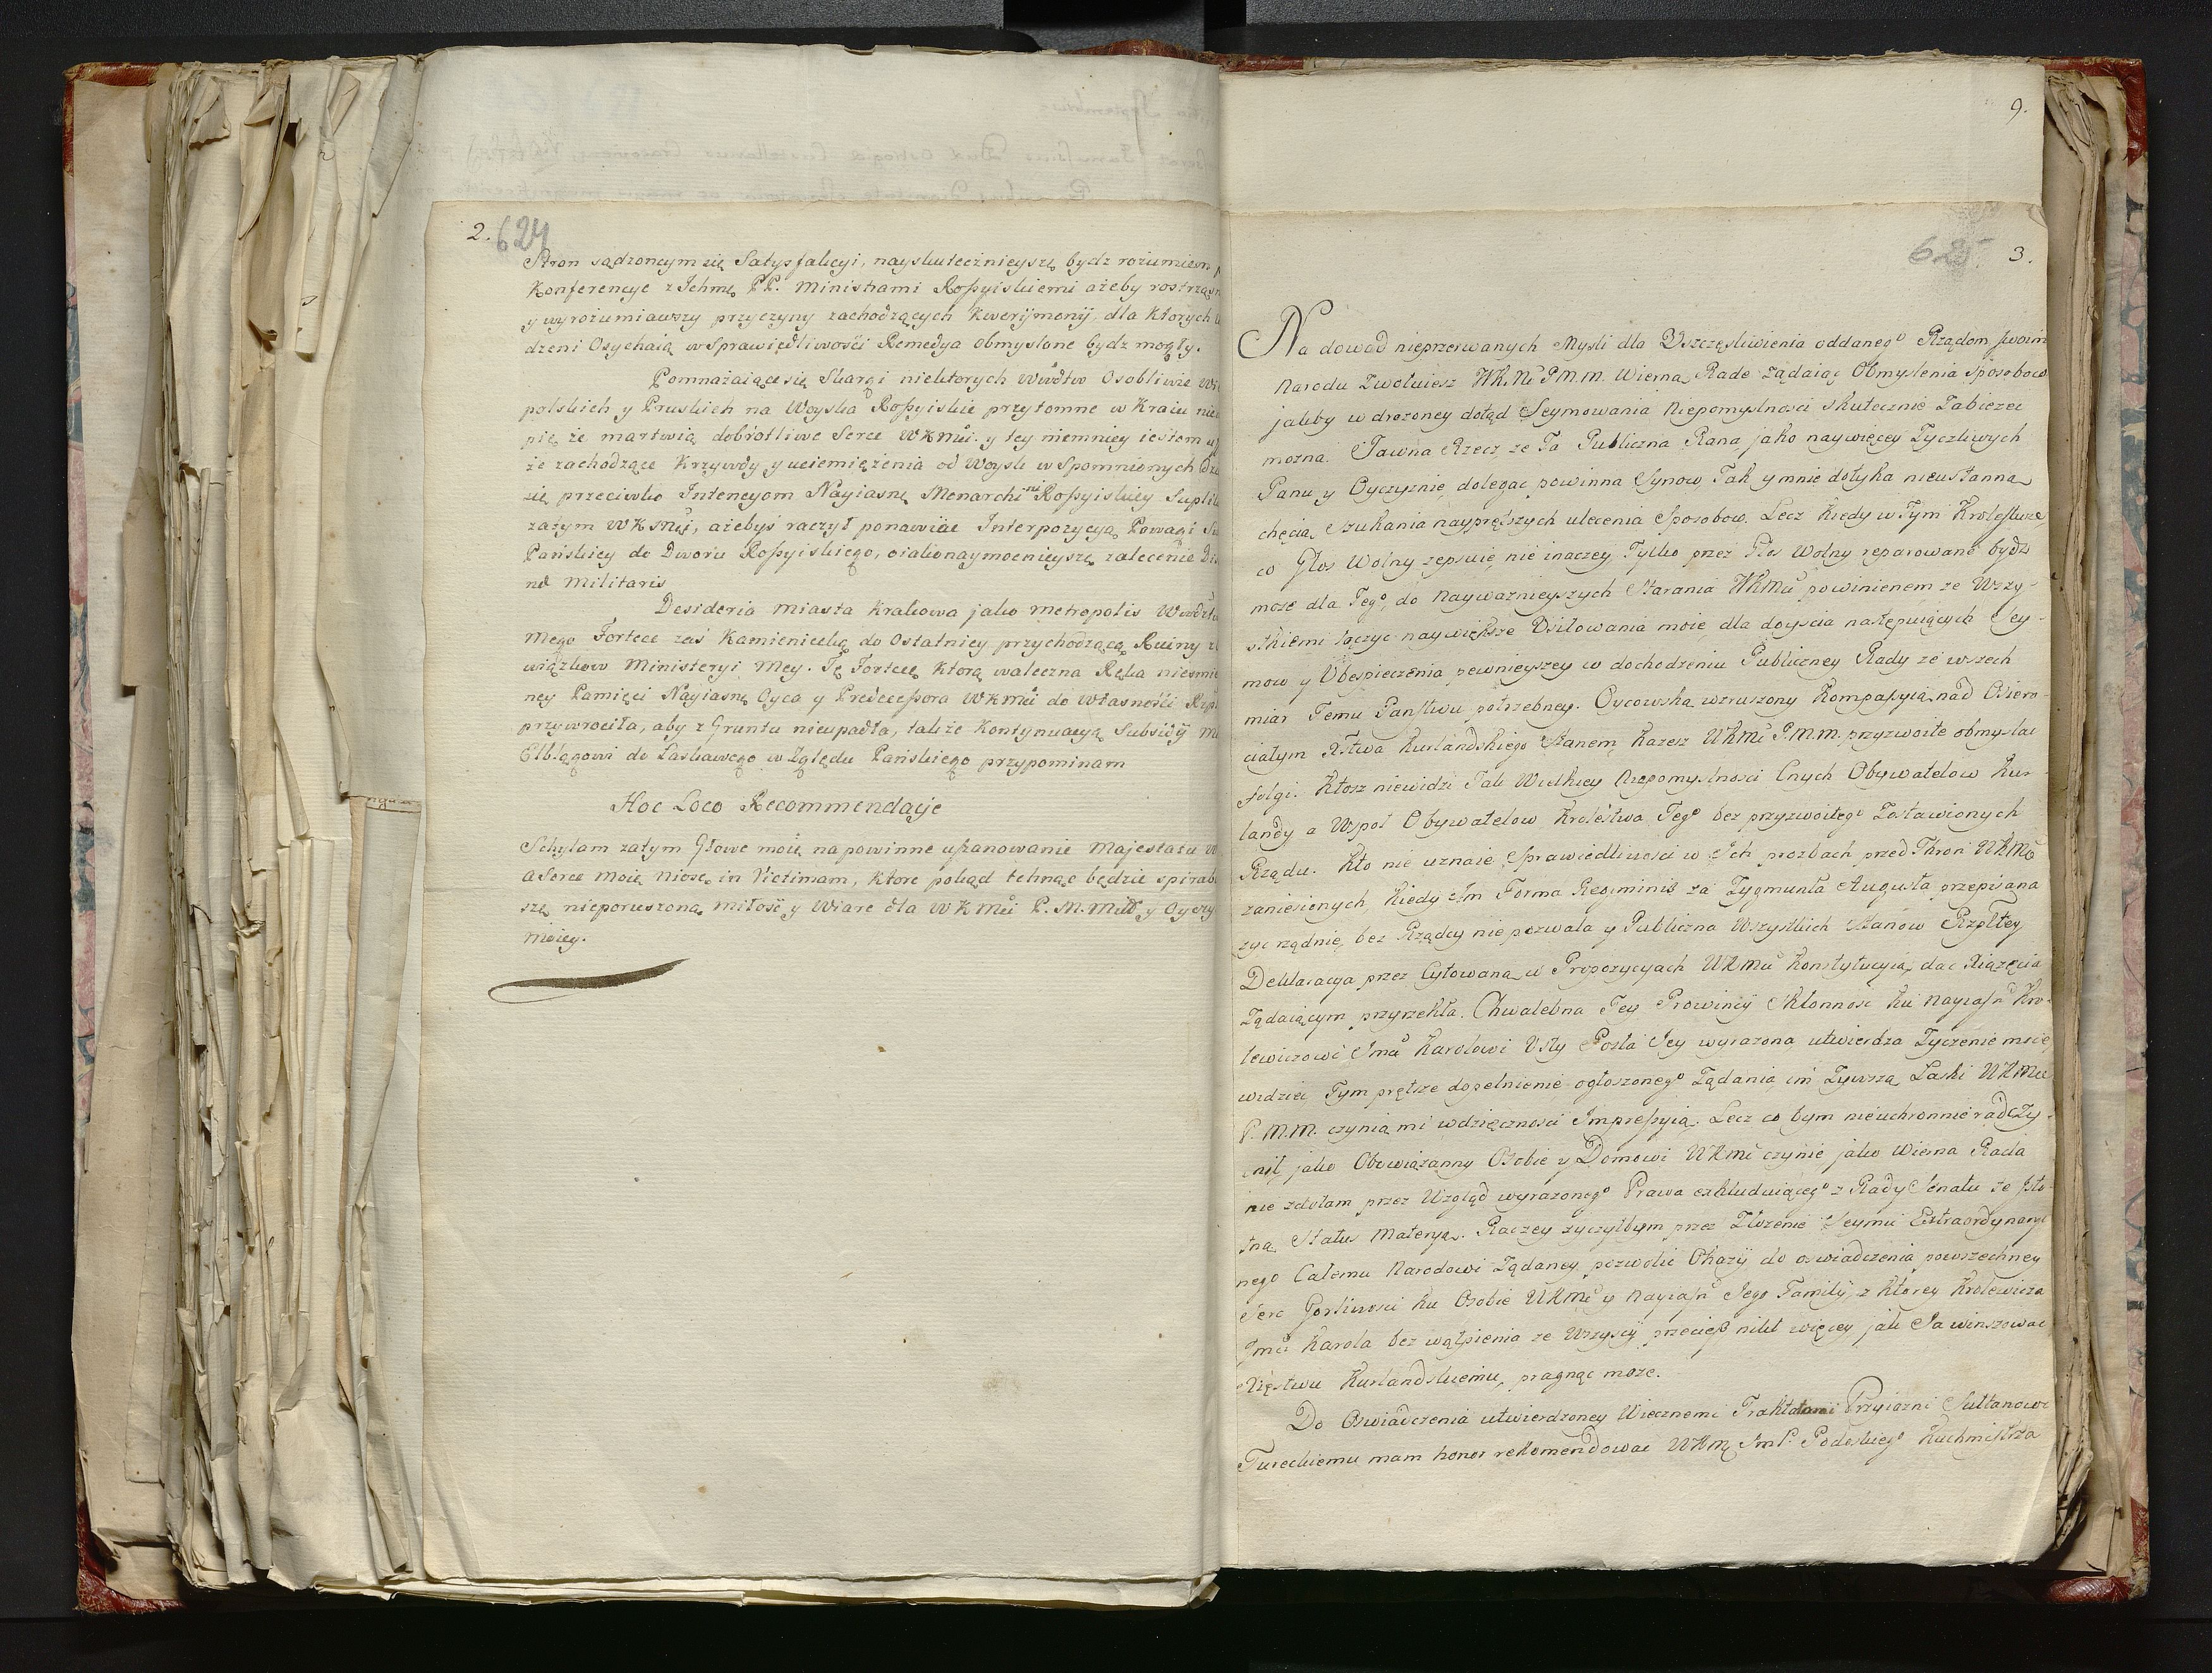 2. 624
Stron sądzoneym się Satysfakcyi, nayskutecznieyszę bydz rozumiem
Konferencye z Jchmę PP. Ministrami Roßyiskiemi ażeby rostrząsn
y wyrozumiawszy przyczyny zachodzących Kwerijmonij, dla ktorych
dzeni Osychaią w Sprawiedliwości Remedya Obmyslone bydz mogły.
Pomnażaiące się Skargi niektorych Wwdztw Osobliwie
polskich y Pruskich na Woyska Roßyiskie przytomne w Kraiu
pię że martwią dobrotliwe Serce WKMći y tey niemniey iestem
że zachodzące Krzywdy y uciemiężenia od Woysk w Spomnionych
się przeciwko Intencyom Nayiasnę Monarchini Roßyiskiey Suplik
zatym WKMći, ażebyś raczył ponawiać Interpozycyą Powagi
Pańskiey do Dworu Roßyiskiego, oiakonaymocnieyszę zalecenie
nę Militaris
Desideria miasta Krakowa jako metropolis
mego Fortece zaś Kamieniecką do Ostatniey przychodzącą Ruiny
wiązkow Ministeryi Mey. Tę Fortecę Ktorą waleczna Ręka niesmie
ney Pamięci Nayiasnę Oyca y Predeceßora WKMći do Własności
przywrociła, aby z Gruntu nieupadła, także Kontynuacyą Subsidij
Elblągowi do Łaskawego w Zględu Pańskiego przypominam
Hoc Loco Recommendacje
Schylam zatym Głowe moię na powinne uszanowanie Majestatu
a Serce Moię Niosę in Victimam, Ktore pokąd tchnąc będzie spirab
szę nieporuszoną miłość y Wiare dla WKMći P. M. Młł y Oyczy
Moiey.
9.
625 3.
Na dowod nieprzerwanych Mysli dla Uszczęsliwienia oddanegᵒ Rządom swoim
Narodu Zwołuiesz WKMć P.M.M. Wierną Radę Żądaiąc Obmyslenia Sposobow
jakby wdrożoney dotąd Seymowania Niepomyslnosci skutecznie Zabieżec
można. Jawna Rzecz, że Ta Publiczna Rana, jako naywięcey Życzliwych
Panu y Oyczyznie dolegac powinna Synow Tak y mnie dotyka nieustanną
chęcią Szukania nayprętszych uleczenia Sposobow. Lecz Kiedy w Tym Krolestwie
co Głos Wolny zepsuie, nie inaczey Tylko przez Głos Wolny reparowane bydz
może dla Tegᵒ, do Nayważnieyszych Starania WKMći powinienem ze Wszy-
stkiemi łączyc naywiększe Usiłowania moie dla doyscia następuiących Sey-
mow y Ubespieczenia pewnieyszey w dochodzeniu Publiczney Rady ze wszech
miar Temu Panstwu potrzebney. Oycowską wzruszony Kompaßyią nad Osiero-
ciałym Xstwa Kurlandskiego Stanem, Każesz WKMć P.M.M. przyzwoite obmyslac
folgi. Ktosz niewidzi Tak Wielkiey Niepomyslnosci Cnych Obywatelow Kur-
landy a Wspoł Obywatelow Krolestwa Tegᵒ bez przyzwoitegᵒ Zostawionych
Rządu. Kto nie uznaie Sprawiedliwosci w Ich prozbach przed Thron WKMći
zaniesionych, Kiedy Im Forma Regiminis za Zygmunta Augusta przepisana
żyć rządnie, bez Rządcy nie pozwala y Publiczna Wszystkich Stanow Rzpltey
Deklaracya przez Cytowaną w Propozycyach WKMći Konstytucyią, dac Xiążęcia
Żądaiącym przyrzekła. Chwalebna Tey Prowincij Skłonnosc Ku Nayiaśⁿ Kro-
lewiczowi Jmći Karolowi Usty Posła Jey wyrażona utwierdza Życzenie moie
widziec Tym prętsze dopełnienie ogłoszonegᵒ Żądania im Żywszą Łaski WKMći
P.M.M. czynią mi wdzięcznosci Impreßyią. Lecz co bym nieuchronnie rad Czy-
nił, jako Obowiązanny Osobie y Domowi WKMći czynić jako Wierna Rada
nie zdołam przez Wzgląd wyrażonegᵒ Prawa exkluduiącegᵒ z Rady Senatu ze Isto-
tną Status Materyą. Raczey życzyłbym przez Złożenie Seymu Extraordynaryi
nego Całemu Narodowi Żądaney pozwolic Okazij do oswiadczenia powszechney
Serc Gorliwosci Ku Osobie WKMći y Nayiaśⁿ Jego Familij, z Ktorey Krolewicza
Jmći Karola bez wątpienia ze Wszyscy przecieß nikt więcey jak Ja winszowac
Xięstwu Kurlandskiemu, pragnąc może.
Do Oswiadczenia utwierdzoney Wiecznemi Traktatami Przyiazni Sułtanowi
Tureckiemu mam honor rekomendowac WKMći JmP. Podoskiegᵒ Kuchmistrza